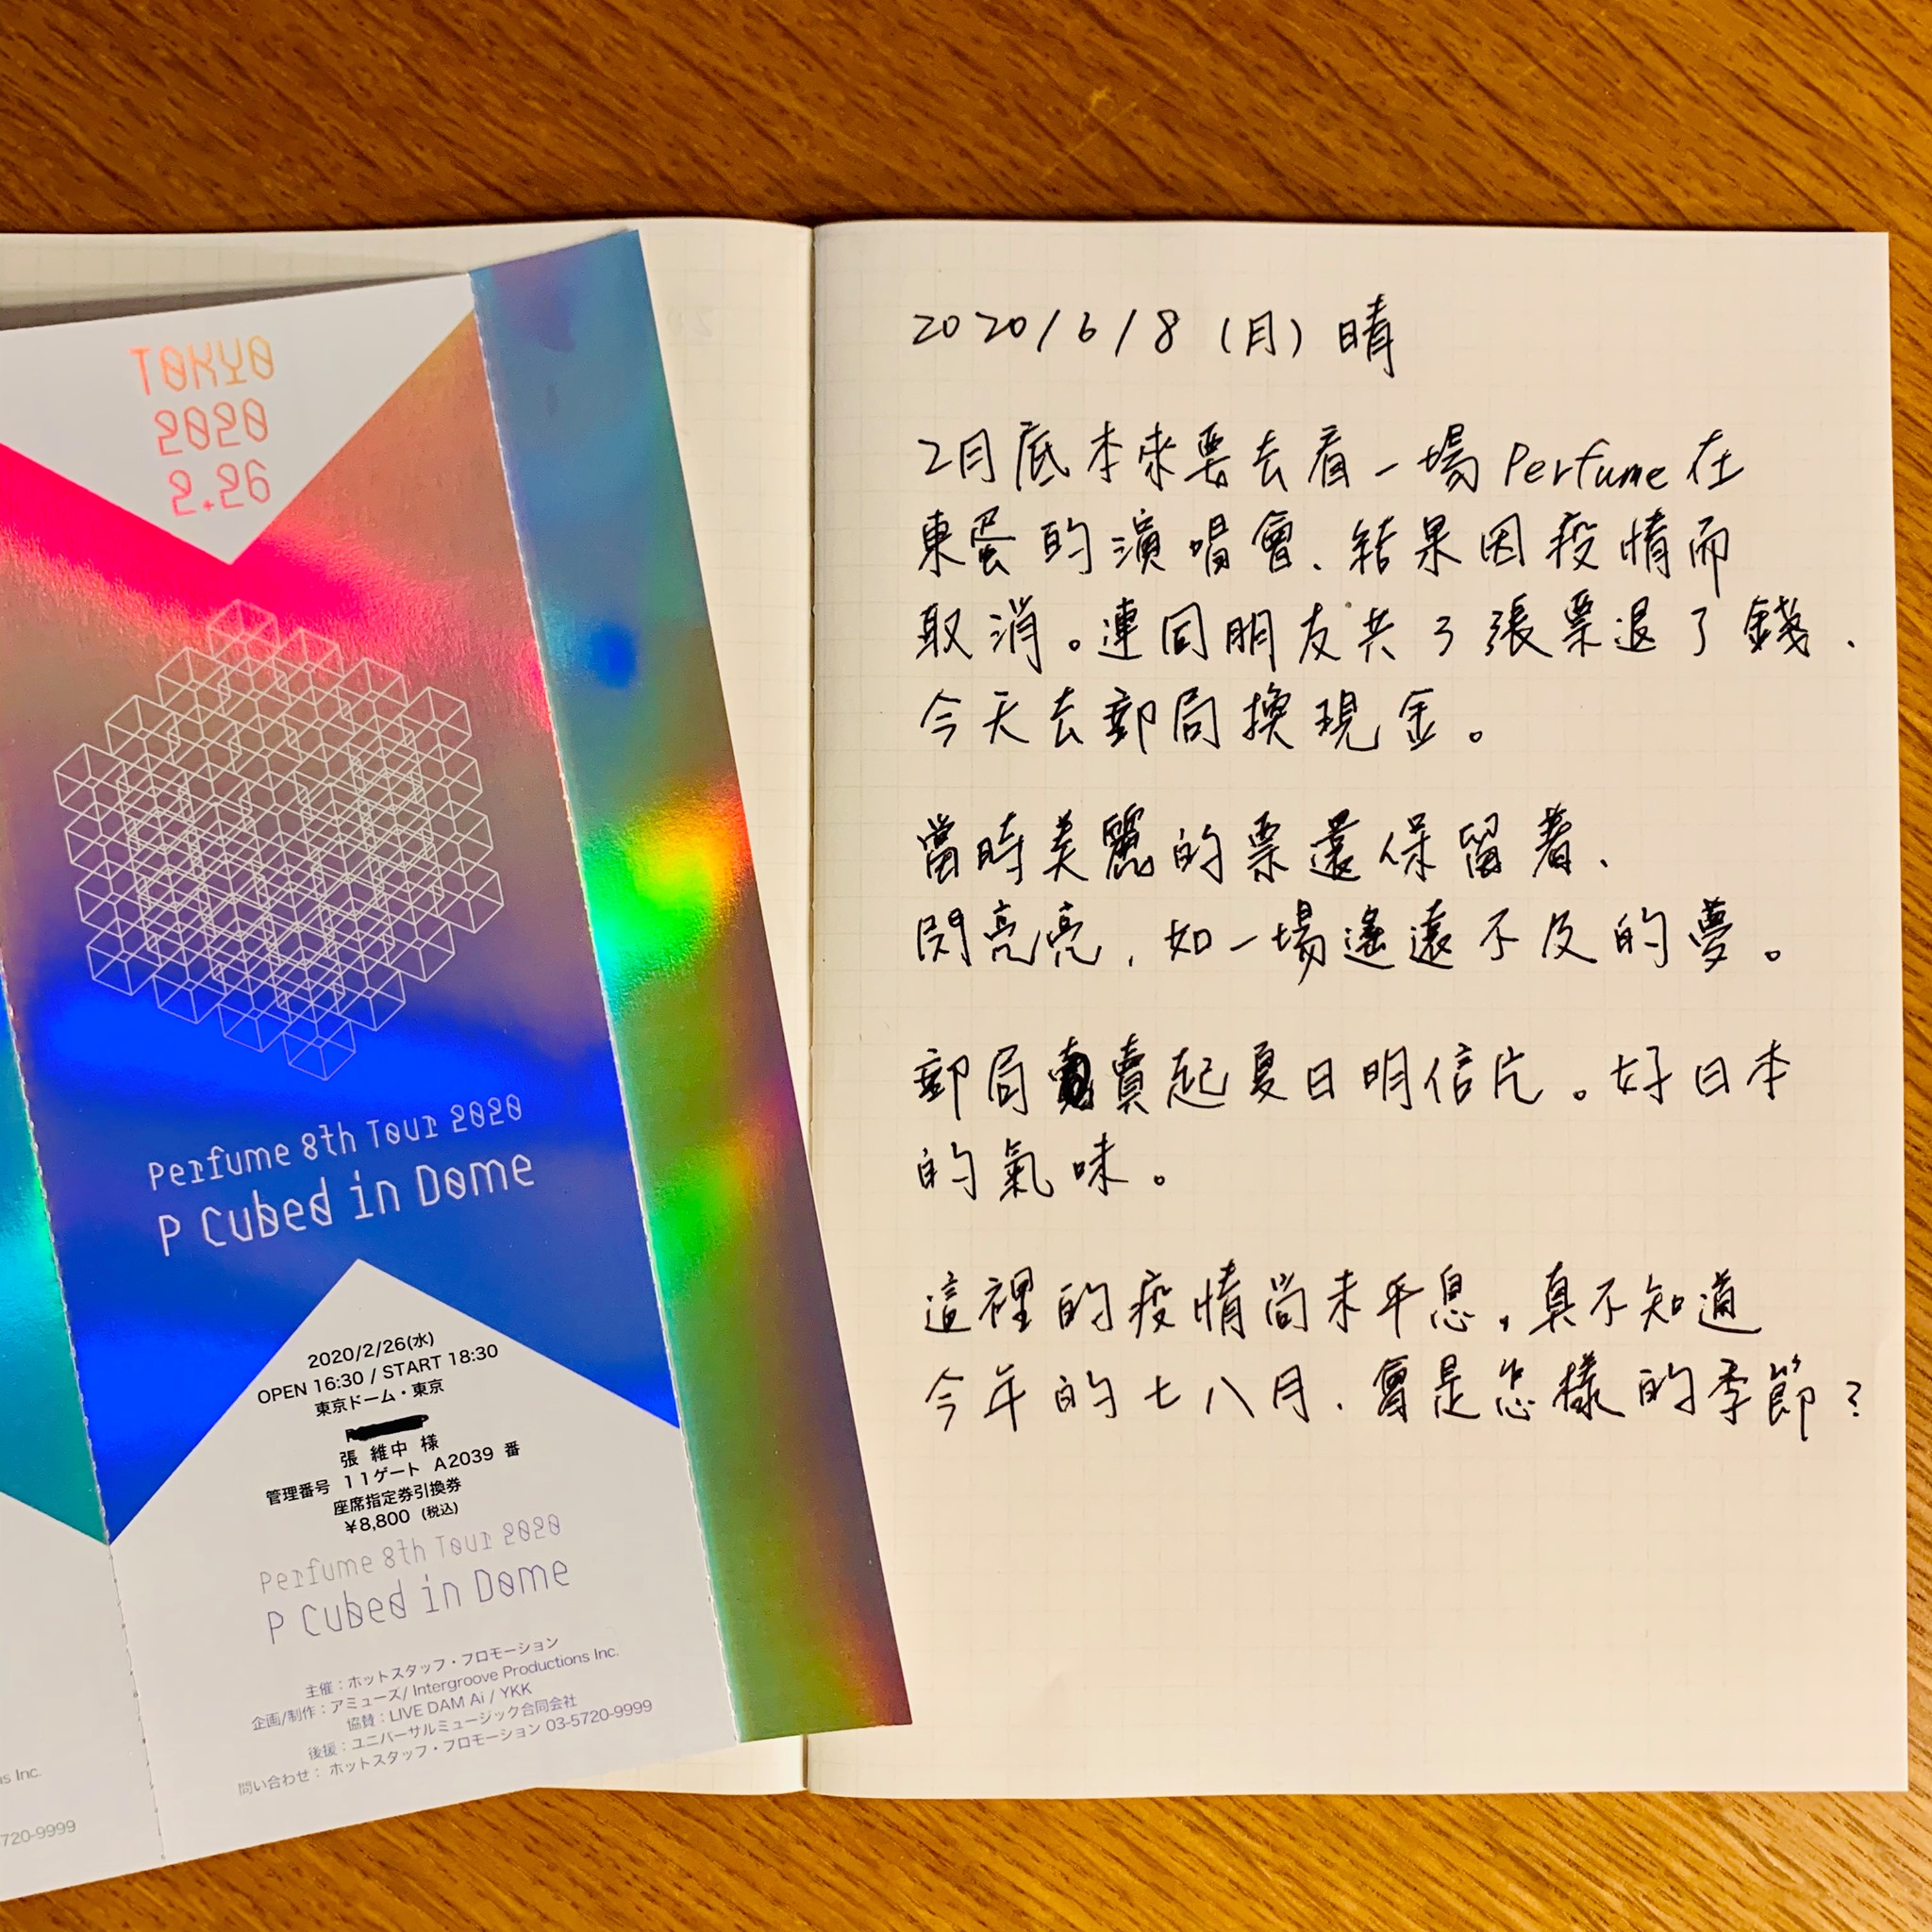 TOKYO
2020
2.26
Perfume 8th Tour 2020
P Cubed in Dome
2020/2/26(水)
OPEN 16:30 / START 18:30
東京ドーム・東京
張 維中 様
管理番号 11ゲート A2039 番
座席指定券引換券
¥8,800 (税込)
Perfume 8th Tour 2020
P Cubed in Dome
主催：ホットスタッフ・プロモーション
企画/制作：アミューズ/ Intergroove Productions Inc.
協賛：LIVE DAM Ai / YKK
後援：ユニバーサルミュージック合同会社
問い合わせ： ホットスタッフ・プロモーション 03-5720-9999
s Inc.
720-9999
2020/6/8 (月) 晴
2月底本來要去看一場 Perfume 在
東蛋的演唱會、結果因疫情而
取消。連同朋友共3張票退了錢、
今天去郵局換現金。
當時美麗的票還保留著、
閃亮亮，如一場遙遠不及的夢。
郵局賣起夏日明信片。好日本
的氣味。
這裡的疫情尚未平息，真不知道
今年的七八月、會是怎樣的季節？